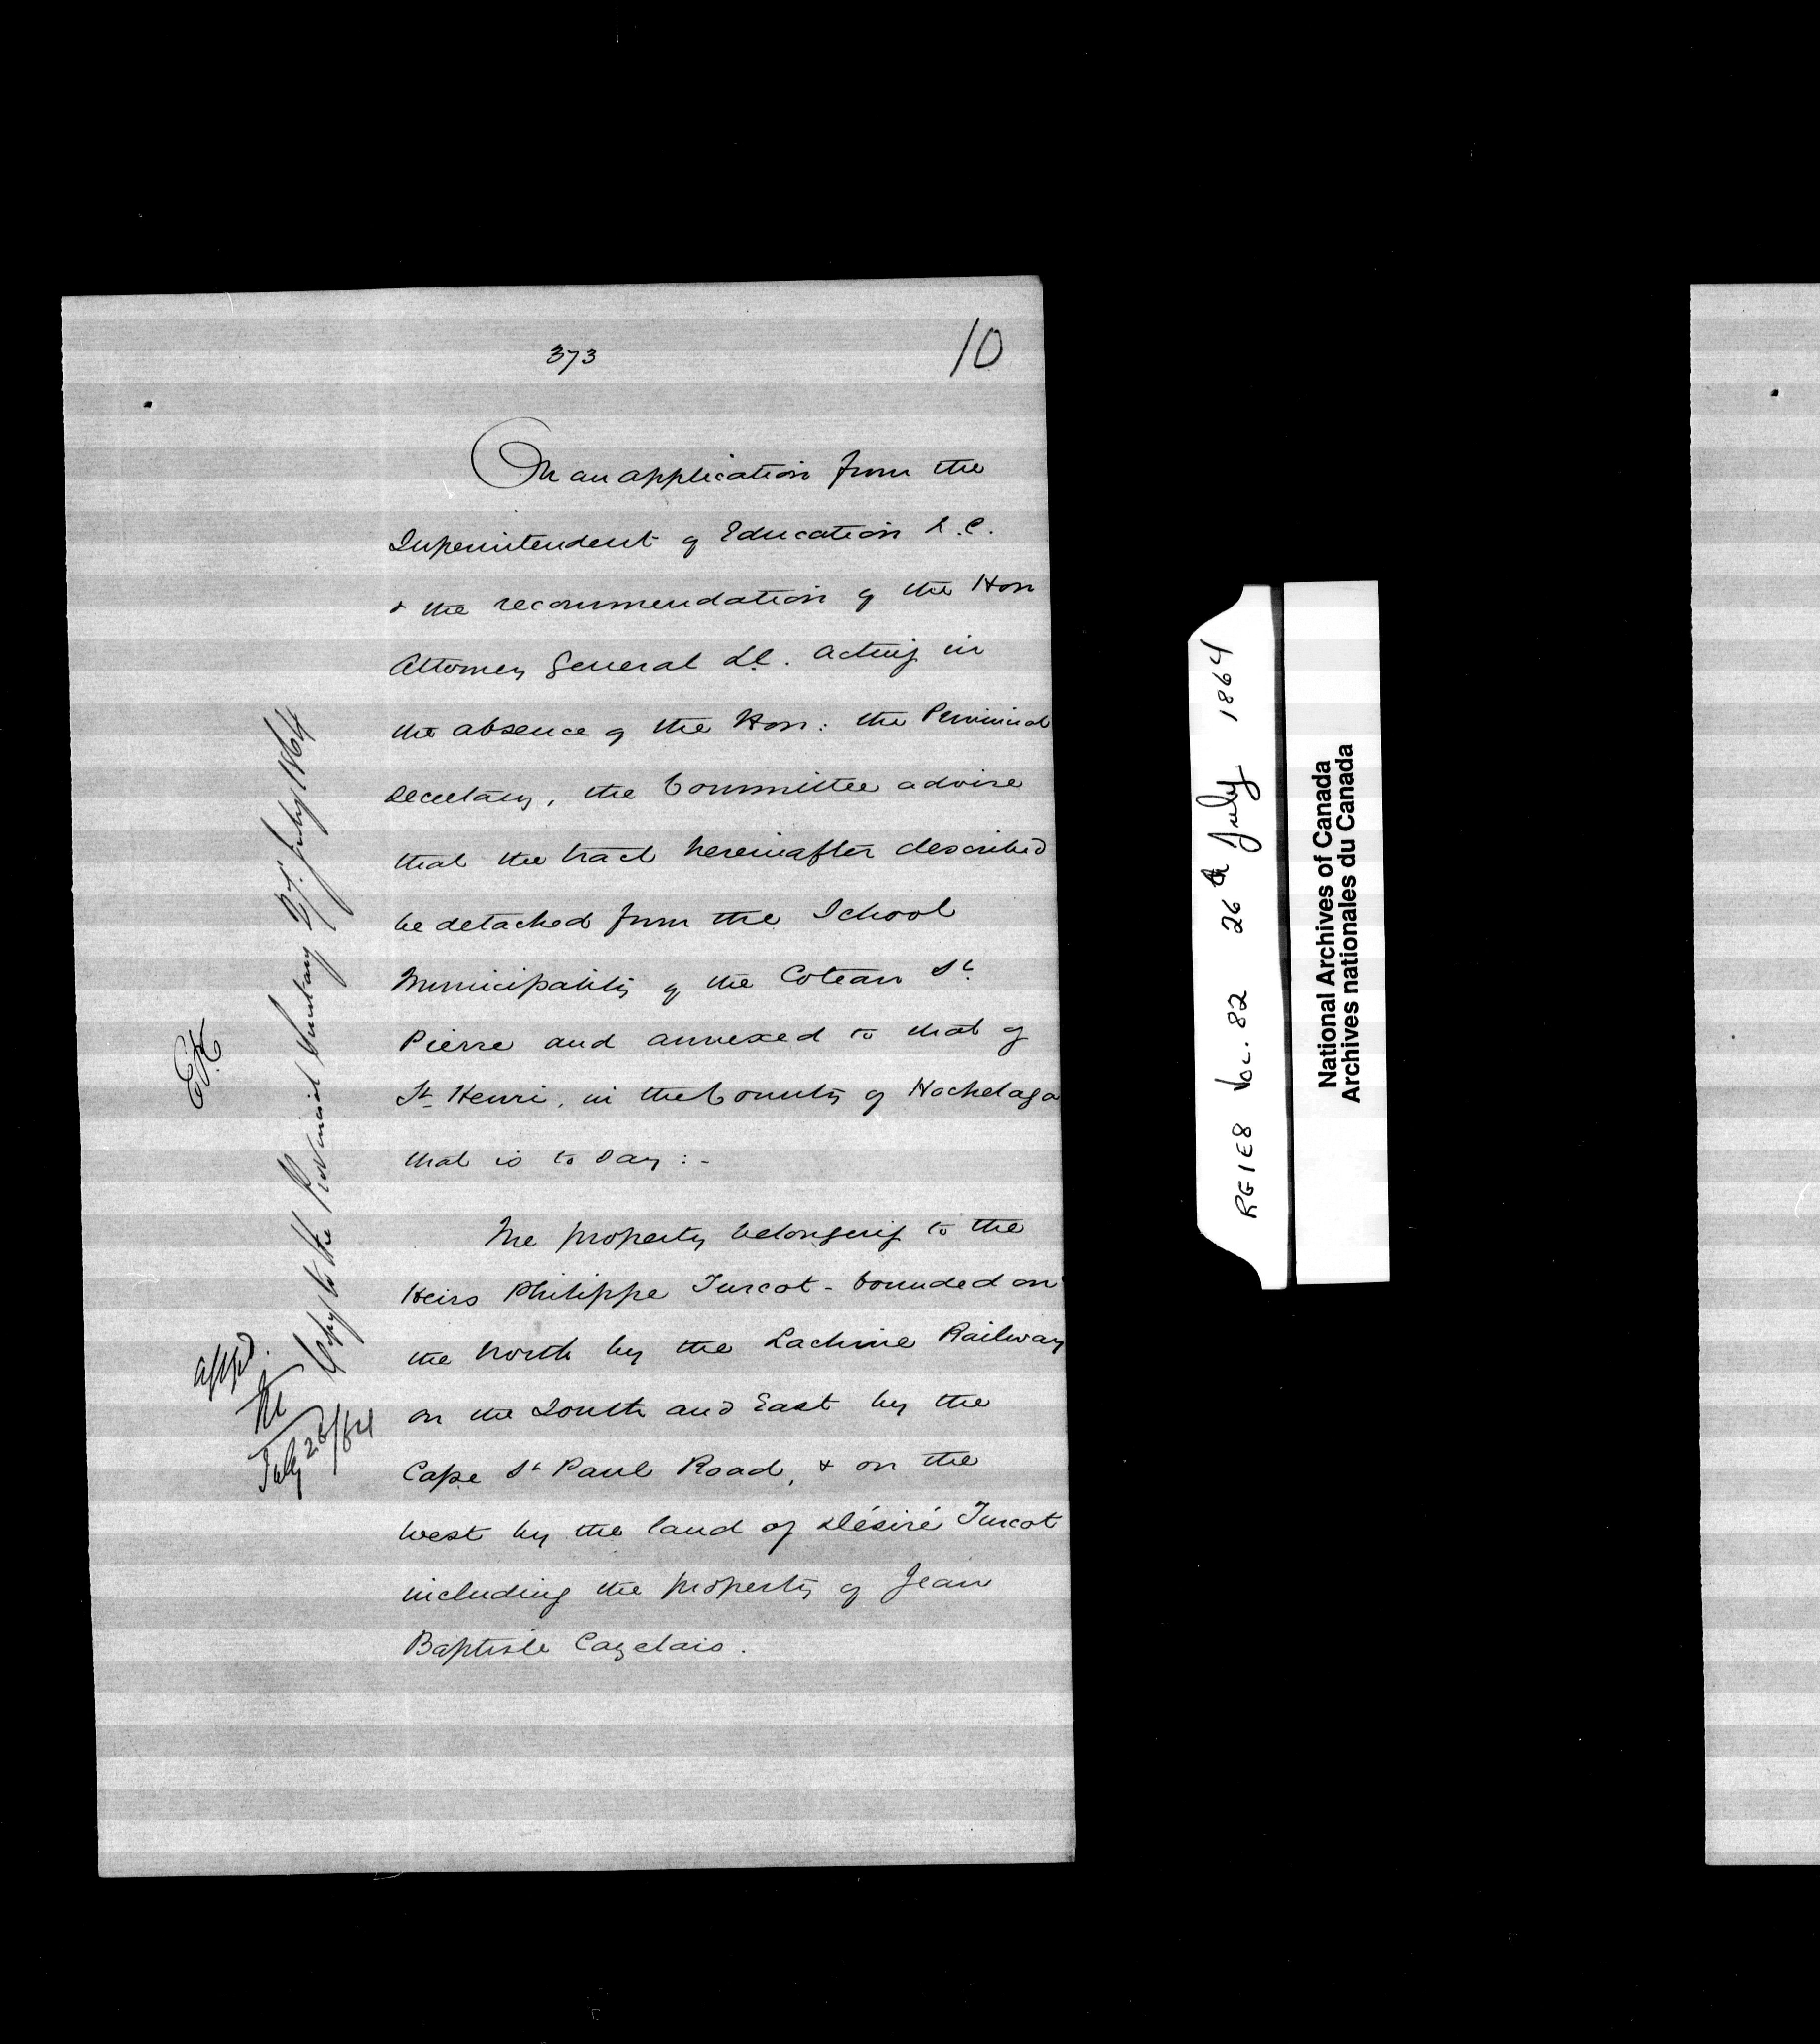 373
10
On an application from the
Superintendent of Education L.C.
& the recommendation of the Hon
Attorney General L.C. acting in
the absence of the Hon: the Provincial
Secretary, the Committee advise
that the tract hereinafter described
be detached from the School
Municipality of the Coteau St
Pierre and annexed to that of
St Henri, in the County of Hochelaga
that is to say:-
The property belonging to the
Heirs Philippe Turcot - bounded on
the North by the Lachine Railway
on the South and East by the
Cape St Paul Road, & on the
West by the land of Désiré Turcot
including the property of Jean
Baptiste Cazelais.
Copy to the Provincial Secretary 27. July 1864
appd.
July 26/64
RG1E8 Vol. 82 26th July 1864
National Archives of Canada
Archives nationales du Canada